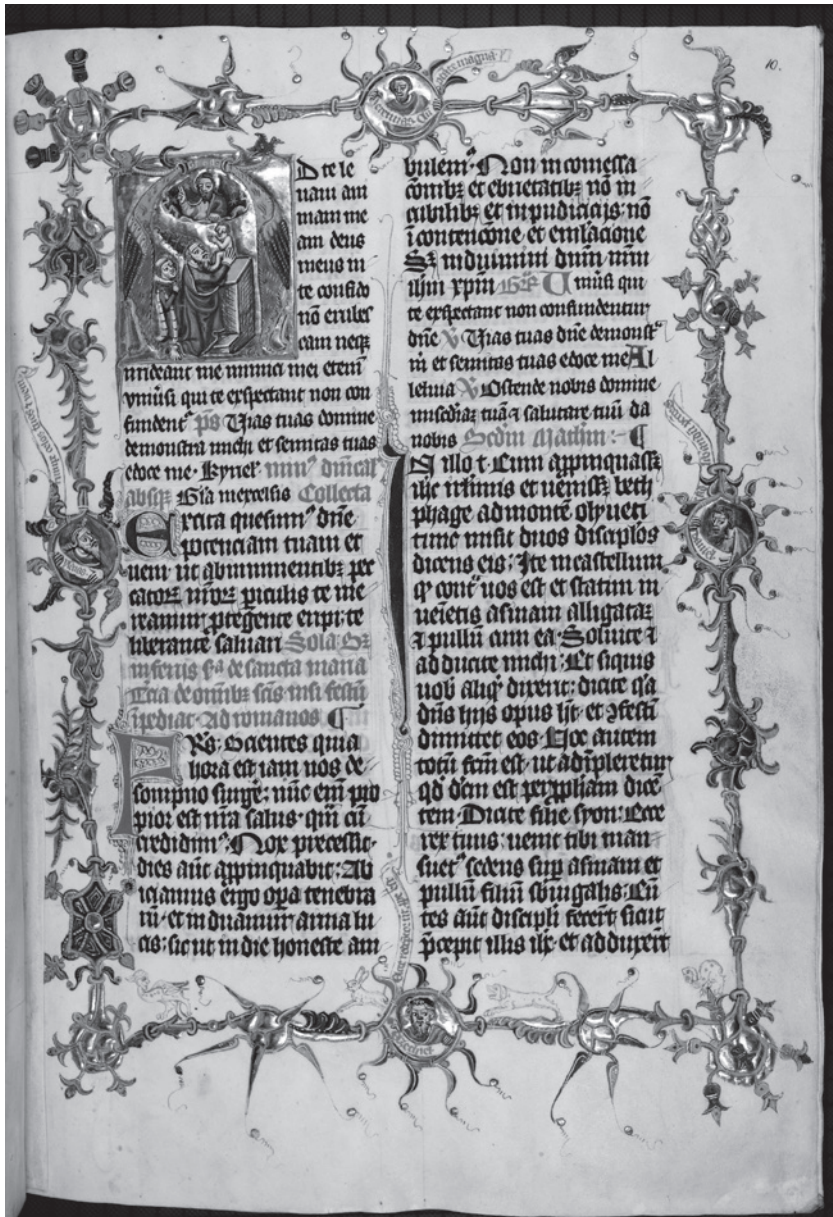 10.
D te le
uaui ani
mam me
am deus
meus in
te confido
nō erubes
cam neqꝫ
irrideant me inimici mei eteni
vniūsi qui te exspectant non con
fundent᷑ p̄s Vias tuas domine
demonstra michi et semitas tuas
edoce me· kyriel᷑
absqꝫ Gl̄a inexcelsis Collecta
Excita quesum᷒ dn̄e
potenciam tuam et
ueni ut abimminentibꝫ pec
catoꝝ nr̄oꝝ piculis te me
reamur ꝓtegente eripi: te
liberante saluari Sola sꝫ
inferijs s̄a de sancta maria
Tcia de omībꝫ sc̄is nisi festū
īpediat· Ad romanos
FRS: Scientes quia
hora est iam nos de
sompno surge᷑: nūc em̄ pro
pior est nr̄a salus· qm̄ cū
credidim᷒· Nox precessit·
dies aūt appinquabit: Ab
iciamus ergo oꝑa tenebra
rū· et induamur arma lu
cis: sic ut in die honeste am
bulem᷒· Non in comessa
cōnibꝫ et ebrietatibꝫ nō in
cubilibꝫ et inpudicicijs· nō
ī contencōne et emlacione
Sꝫ induimini dn̄m nr̄m
ih̄m xp̄m Gr̄ Vniūsi qui
te exspectant non confundentur
dn̄e V̄ Vias tuas dn̄e demonst᷑
m̄ et semitas tuas edoce me Al
leluia V̄ Ostende nobis domine
misc̄diaꝫ tuā ⁊ salutare tuū da
nobis Scdm̄ Mathm̄ :-
In illo t· Cum appinquassꝫ
ih̄c ih̄rlimis et uenissꝫ beth
phage ad montē olyueti
tunc misit duos discip̄los
dicens eis: Ite in castellum
qd᷑ cont᷑ uos est et statim in
uēietis asinam alligataꝫ
⁊ pullū cum ea· Soluite ⁊
ad ducite michi: Et siquis
uob᷑ aliqd᷑ dixerit: dicite q̄a
dn̄s hijs opus h̄t· et ꝯfestī
dimittet eos· Hoc autem
totū fcm̄ est· ut adīpleretur
qd̄ dcm̄ est per ꝓph̄am dicē
tem· Dicite filie syon: Ecce
rex tuus: uenit tibi man
suet᷒ sedens suꝑ asinam et
pullū filiū sbiugalis: Eū
tes aūt discipli fecerūt sicut
p̄cepit illis ih̄c· et adduxer̄t